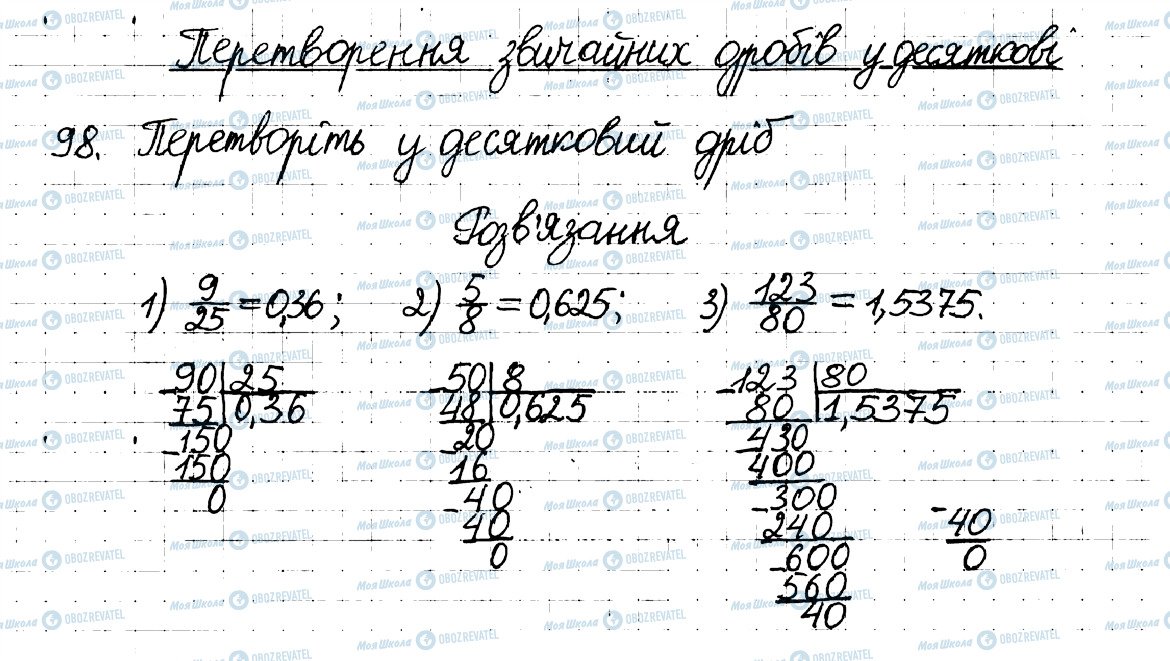 Перетворення звичайних дробів у десяткові
98. Перетворіть у десятковий дріб
Розв'язання
1) 9/25 = 0,36; 2) 5/8 = 0,625; 3) 123/80 = 1,5375.
-90 | 25
75 | 0,36
-150
150
0
-50 | 8
48 | 0,625
-20
16
-40
40
0
-123 | 80
80 | 1,5375
-430
400
-300
240
-600
560
40
-40
0
МояШкола OBOZREVATEL